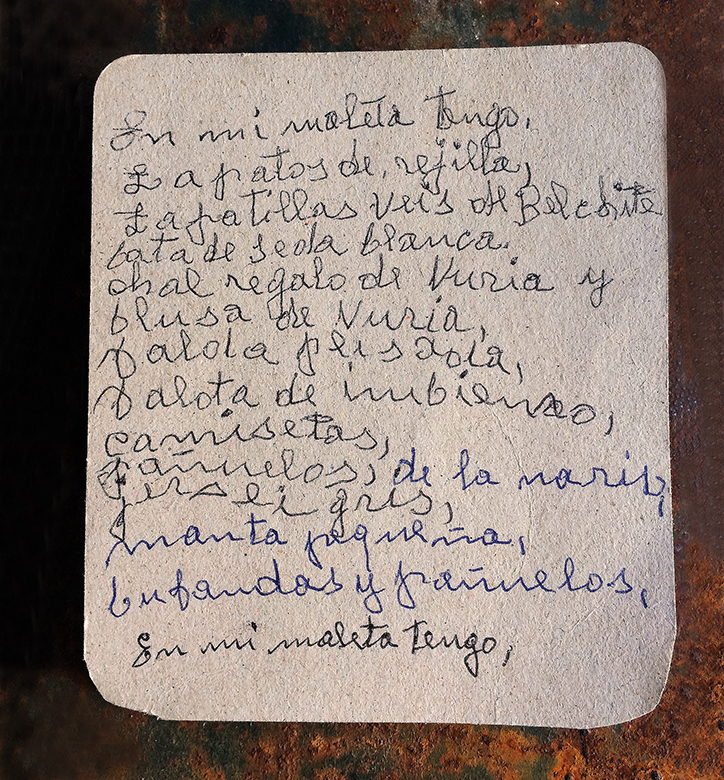 En mi maleta tengo,
Zapatos de rejilla,
Zapatillas veis de Belchite
bata de seda blanca.
chal regalo de Nuria y
blusa de Nuria,
falda plisada,
falda de imbierno,
camisetas,
pañuelos, de la nariz,
jersei gris,
manta pequeña,
bufandas y pañuelos,
En mi maleta tengo,